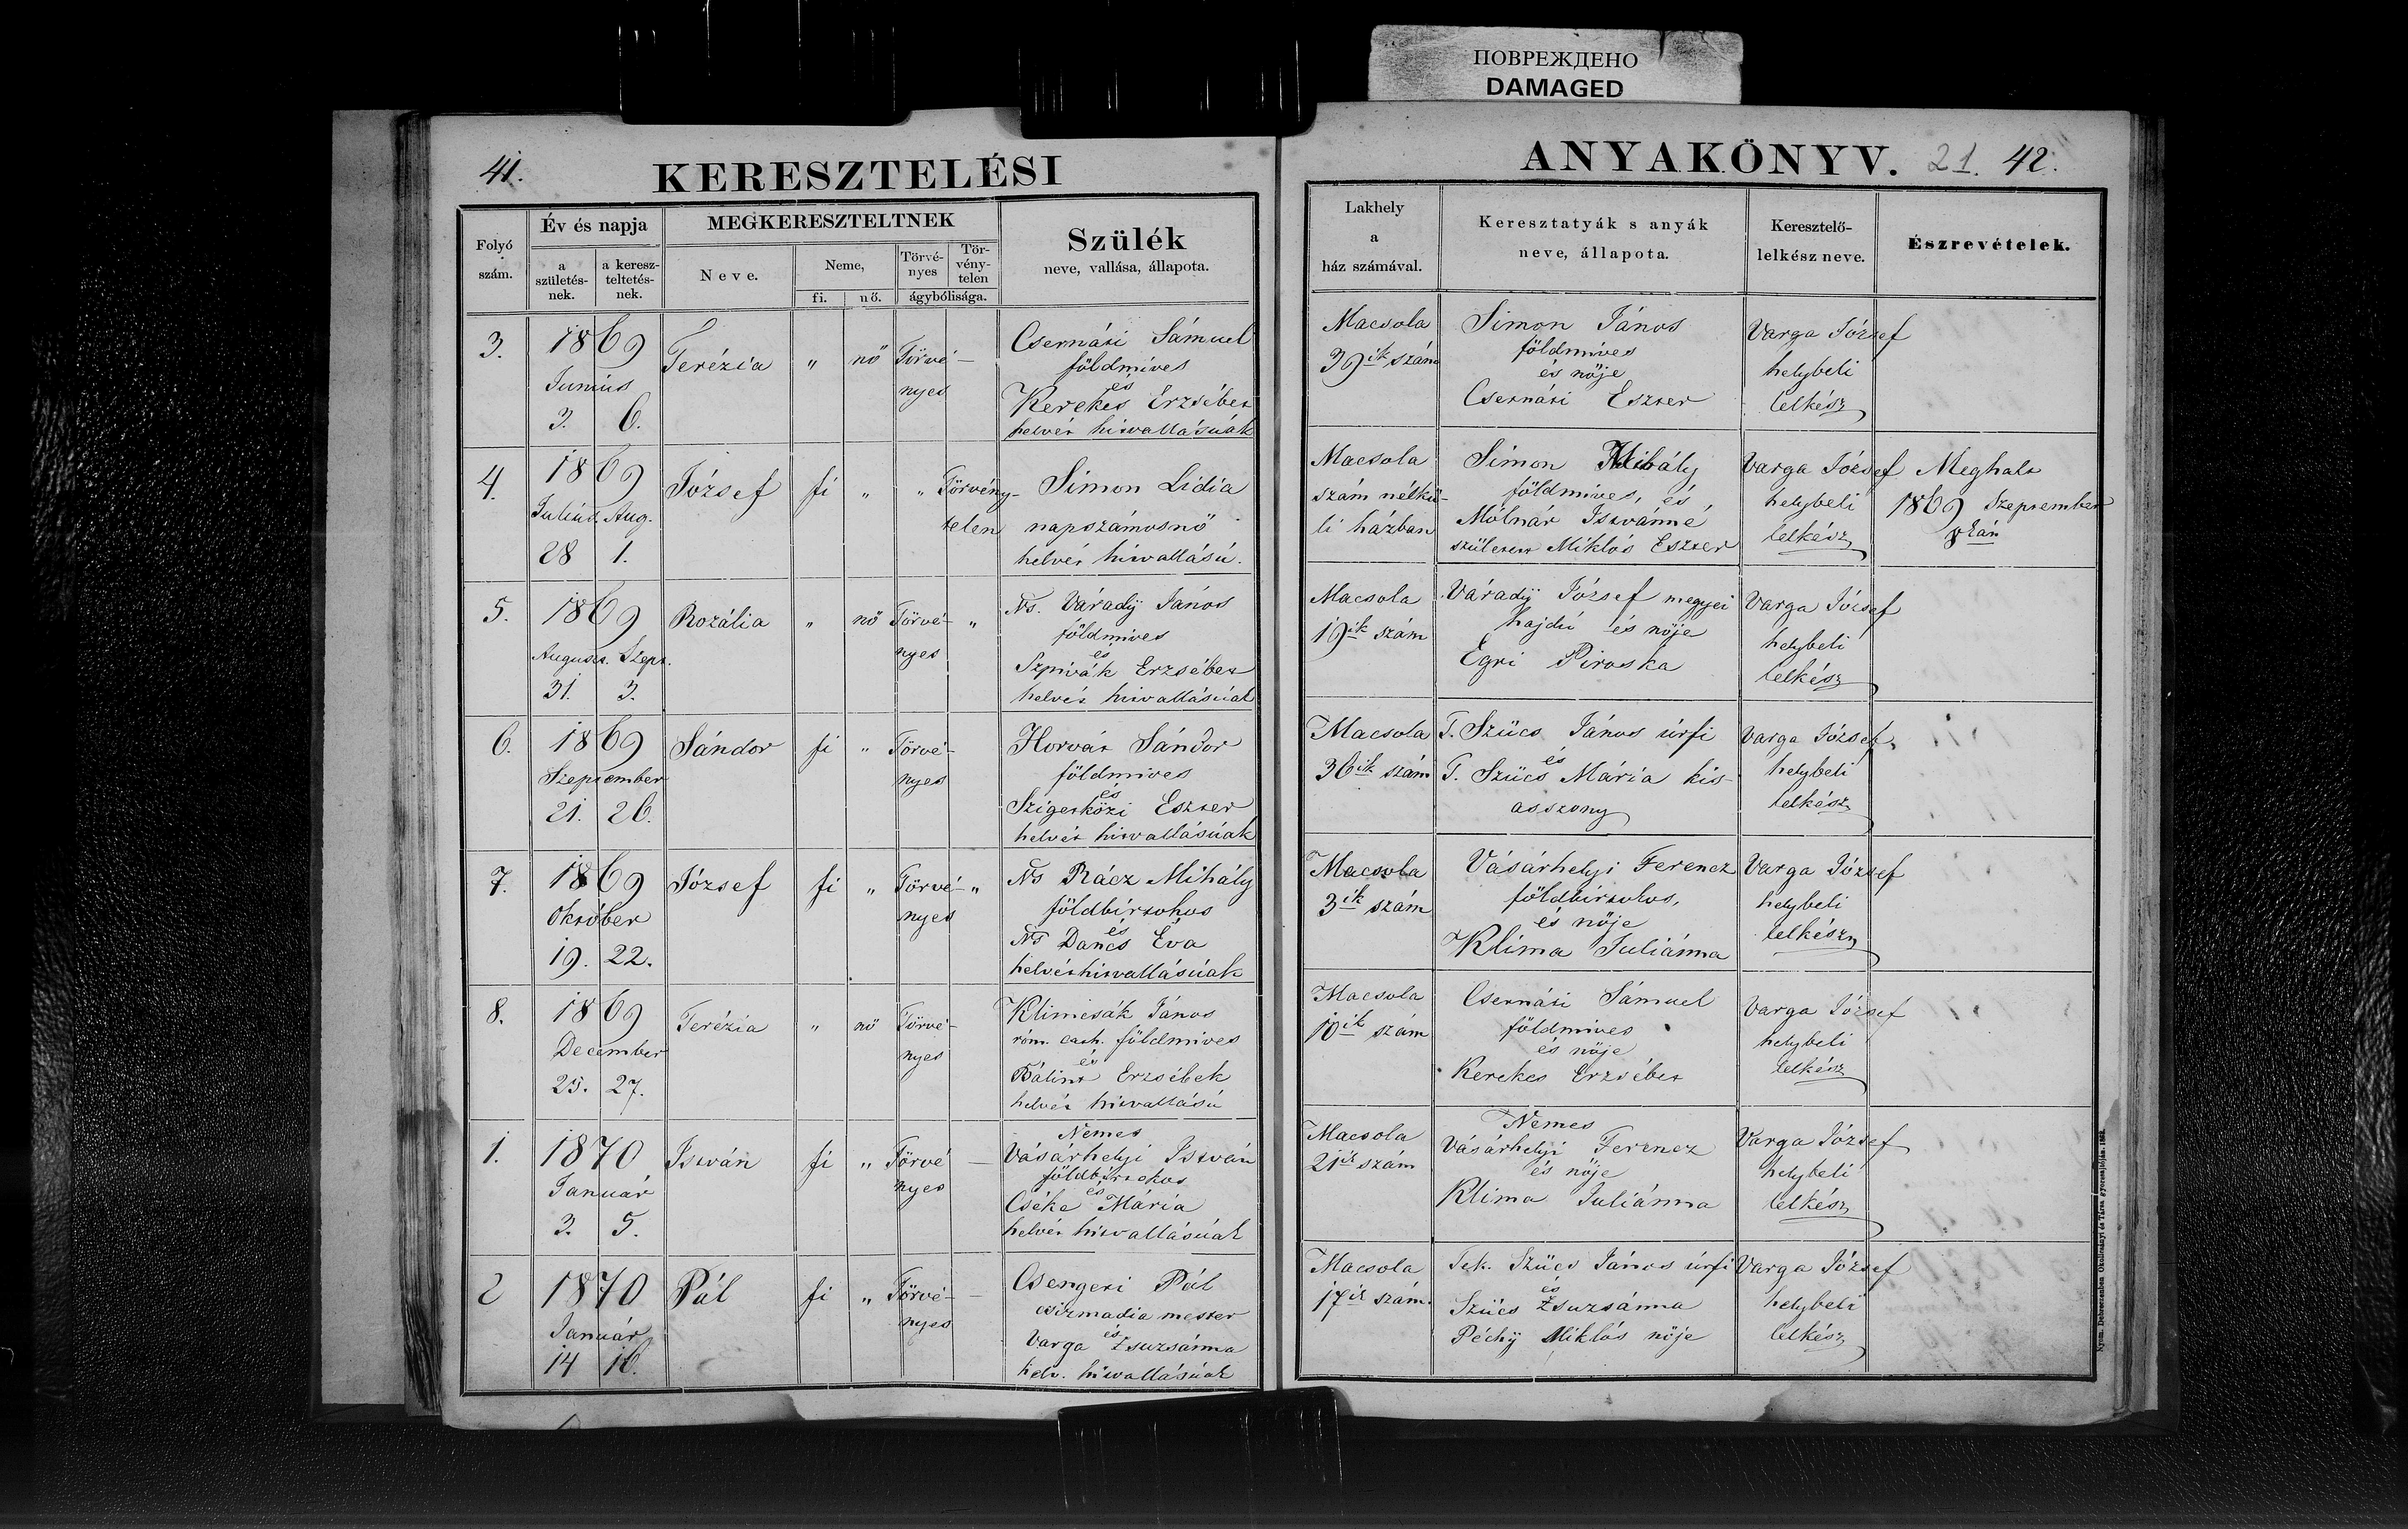 ПОВРЕЖДЕНО
DAMAGED
41.
KERESZTELÉSI
Folyó
szám.
Év és napja
a
születés-
nek.
a keresz-
teltetés-
nek.
MEGKERESZTELTNEK
Neve.
Neme,
fi.
nő.
Törvé-
nyes
Tör-
vény-
telen
ágybólisága.
Szülék
neve, vallása, állapota.
3.
1869
Junius
3. 6.
Terézia
"
nő
Törvé-
nyes
Csernáti Sámuel
földmives
és
Kerekes Erzsébet
helvét hitvallásúak
4.
1869
Julius. Aug.
28 1.
József
fi
"
"
Törvény-
telen
Simon Lidia
napszámosnő
helvét hitvallású.
5.
1869
August. Szept.
31. 3.
Rozália
"
nő
Törvé-
nyes
"
Ns. Várady János
földmives
és
Szpivák Erzsébet
helvét hitvallásúak
6.
1869
Szeptember
21. 26.
Sándor
fi
"
Törvé-
nyes
Horvát Sándor
földmives
és
Szigetközi Eszter
helvét hitvallásúak
7.
1869
Október
19. 22.
József
fi
"
Törvé-
nyes
"
Ns Rácz Mihály
földbirtokos
és
Ns Dancs Éva
helvét hitvallásúak
8.
1869
December
25. 27.
Terézia
"
nő
Törvé-
nyes
Klimcsák János
róm. cath. földmives
és
Bálint Erzsébek
helvét hitvallású
1.
1870
Január
3. 5.
István
fi
"
Törvé
nyes
Nemes
Vásárhelyi István
földbirtokos
és
Cséke Mária
helvét hitvallásúak
2
1870
Január
14 16.
Pál
fi
"
Törvé-
nyes
Csengeri Pál
csizmadia mester
és
Varga Zsuzsánna
helv. hitvallásúak
ANYAKÖNYV. 21. 42.
Lakhely
a
ház számával.
Keresztatyák s anyák
neve, állapota.
Keresztelő-
lelkész neve.
Észrevételek.
Macsola
39ik szám
Simon János
földmives
és nője
Csernáti Eszter
Varga József
helybeli
lelkész
Macsola
szám nélkü-
li házban
Simon Mihály
földmives, és
Mólnár Istvánné
született Miklós Eszter
Varga József
helybeli
lelkész
Meghalt
1869 Szeptember
Macsola
19ik szám
Várady József megyei
hajdú és nője
Egri Piroska
Varga József
helybeli
lelkész
Macsola
36ik szám
T. Szücs János úrfi
és
T. Szücs Mária kis-
asszony
Varga József
helybeli
lelkész
Macsola
3ik szám
Vásárhelyi Ferencz
földbirtokos,
és nője
Klima Juliánna
Varga József
helybeli
lelkész
Macsola
10ik szám
Csernáti Sámuel
földmives
és nője
Kerekes Erzsébet
Varga József
helybeli
lelkész
Macsola
21ik szám
Nemes
Vásárhelyi Ferencz
és nője
Klima Juliánna
Varga József
helybeli
lelkész
Macsola
17ik szám.
Tek. Szücs János úrfi
és
Szücs Zsuzsánna
Péchy Miklós nője
Varga József
helybeli
lelkész